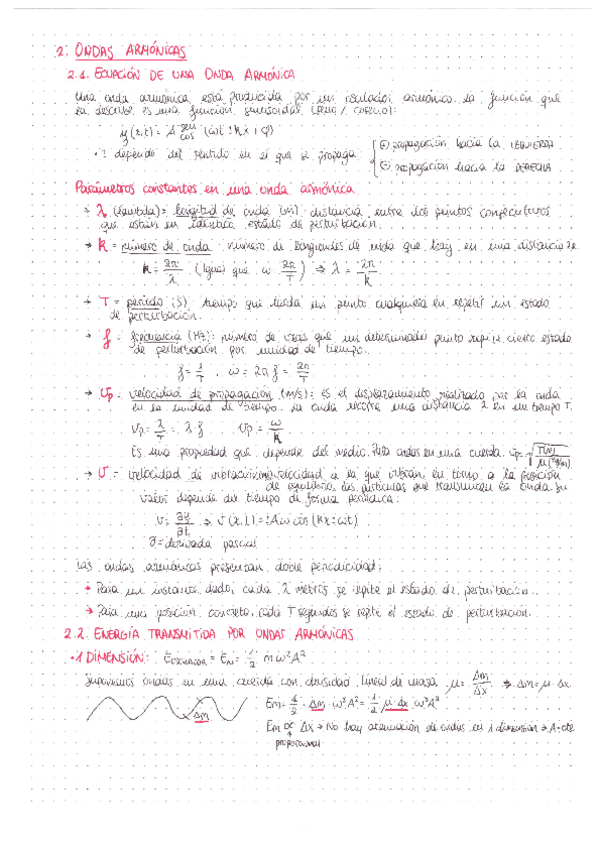 2. ONDAS ARMÓNICAS
2.1. ECUACIÓN DE UNA ONDA ARMÓNICA
Una onda armónica está producida por un oscilador armónico. La función que
la describe es una función sinusoidal (seno / coseno):
y(x,t) = A sen/cos (ωt ± kx + φ)
± depende del sentido en el que se propaga
(+) propagación hacia la IZQUIERDA
(-) propagación hacia la DERECHA
Parámetros constantes en una onda armónica
→ λ (lambda) = longitud de onda (m): distancia entre dos puntos consecutivos
que están en idéntico estado de perturbación.
→ k = número de onda: número de longitudes de onda que hay en una distancia 2π
k = 2π/λ (Igual que ω = 2π/T) ⇒ λ = 2π/k
→ T = período (s) tiempo que tarda un punto cualquiera en repetir un estado
de perturbación.
→ f = frecuencia (Hz): número de veces que un determinado punto repite cierto estado
de perturbación por unidad de tiempo.
f = 1/T ω = 2πf = 2π/T
→ Vp = velocidad de propagación (m/s): es el desplazamiento realizado por la onda
en la unidad de tiempo. La onda recorre una distancia λ en un tiempo T.
Vp = λ/T = λ·f Vp = ω/k
Es una propiedad que depende del medio. Para ondas en una cuerda: Vp = √(T(N)/μ(kg/m))
→ V = velocidad de vibración: velocidad a la que vibran en torno a la posición
de equilibrio, las partículas que transmiten la onda. Su
valor depende del tiempo de forma periódica:
v = ∂y/∂t ⇒ v(x,t) = ±Aω cos(kx ± ωt)
∂ = derivada parcial
Las ondas armónicas presentan doble periodicidad:
→ Para un instante dado, cada λ metros se repite el estado de perturbación.
→ Para una posición concreta, cada T segundos se repite el estado de perturbación.
2.2. ENERGÍA TRANSMITIDA POR ONDAS ARMÓNICAS
• 1 DIMENSIÓN: E OSCILADOR = Em = 1/2 m ω² A²
Suponemos ondas en una cuerda con densidad lineal de masa μ = Δm/Δx ⇒ Δm = μ·Δx
Δm
Em = 1/2 · Δm · ω² A² = 1/2 μ·Δx ω² A²
Em ∝ Δx → No hay atenuación de ondas en 1 dimensión → A = cte
proporcional